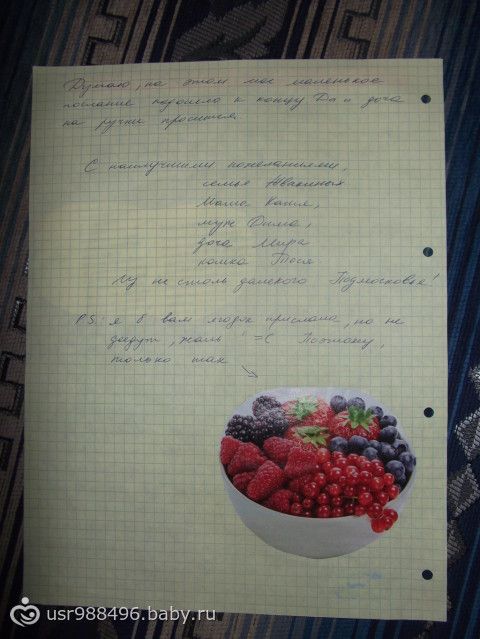 Думаю, на этом мое маленькое
послание подошло к концу Да и доча
на ручки просится.
С наилучшими пожеланиями,
семья Жвакиных
Мама Катя,
муж Дима,
доча Мира
кошка Тося
Из не столь далекого Подмосковья!
P.S. я б вам ягодок прислала, но не
дойдут, жаль =( Поэтому,
только так
usr988496.baby.ru